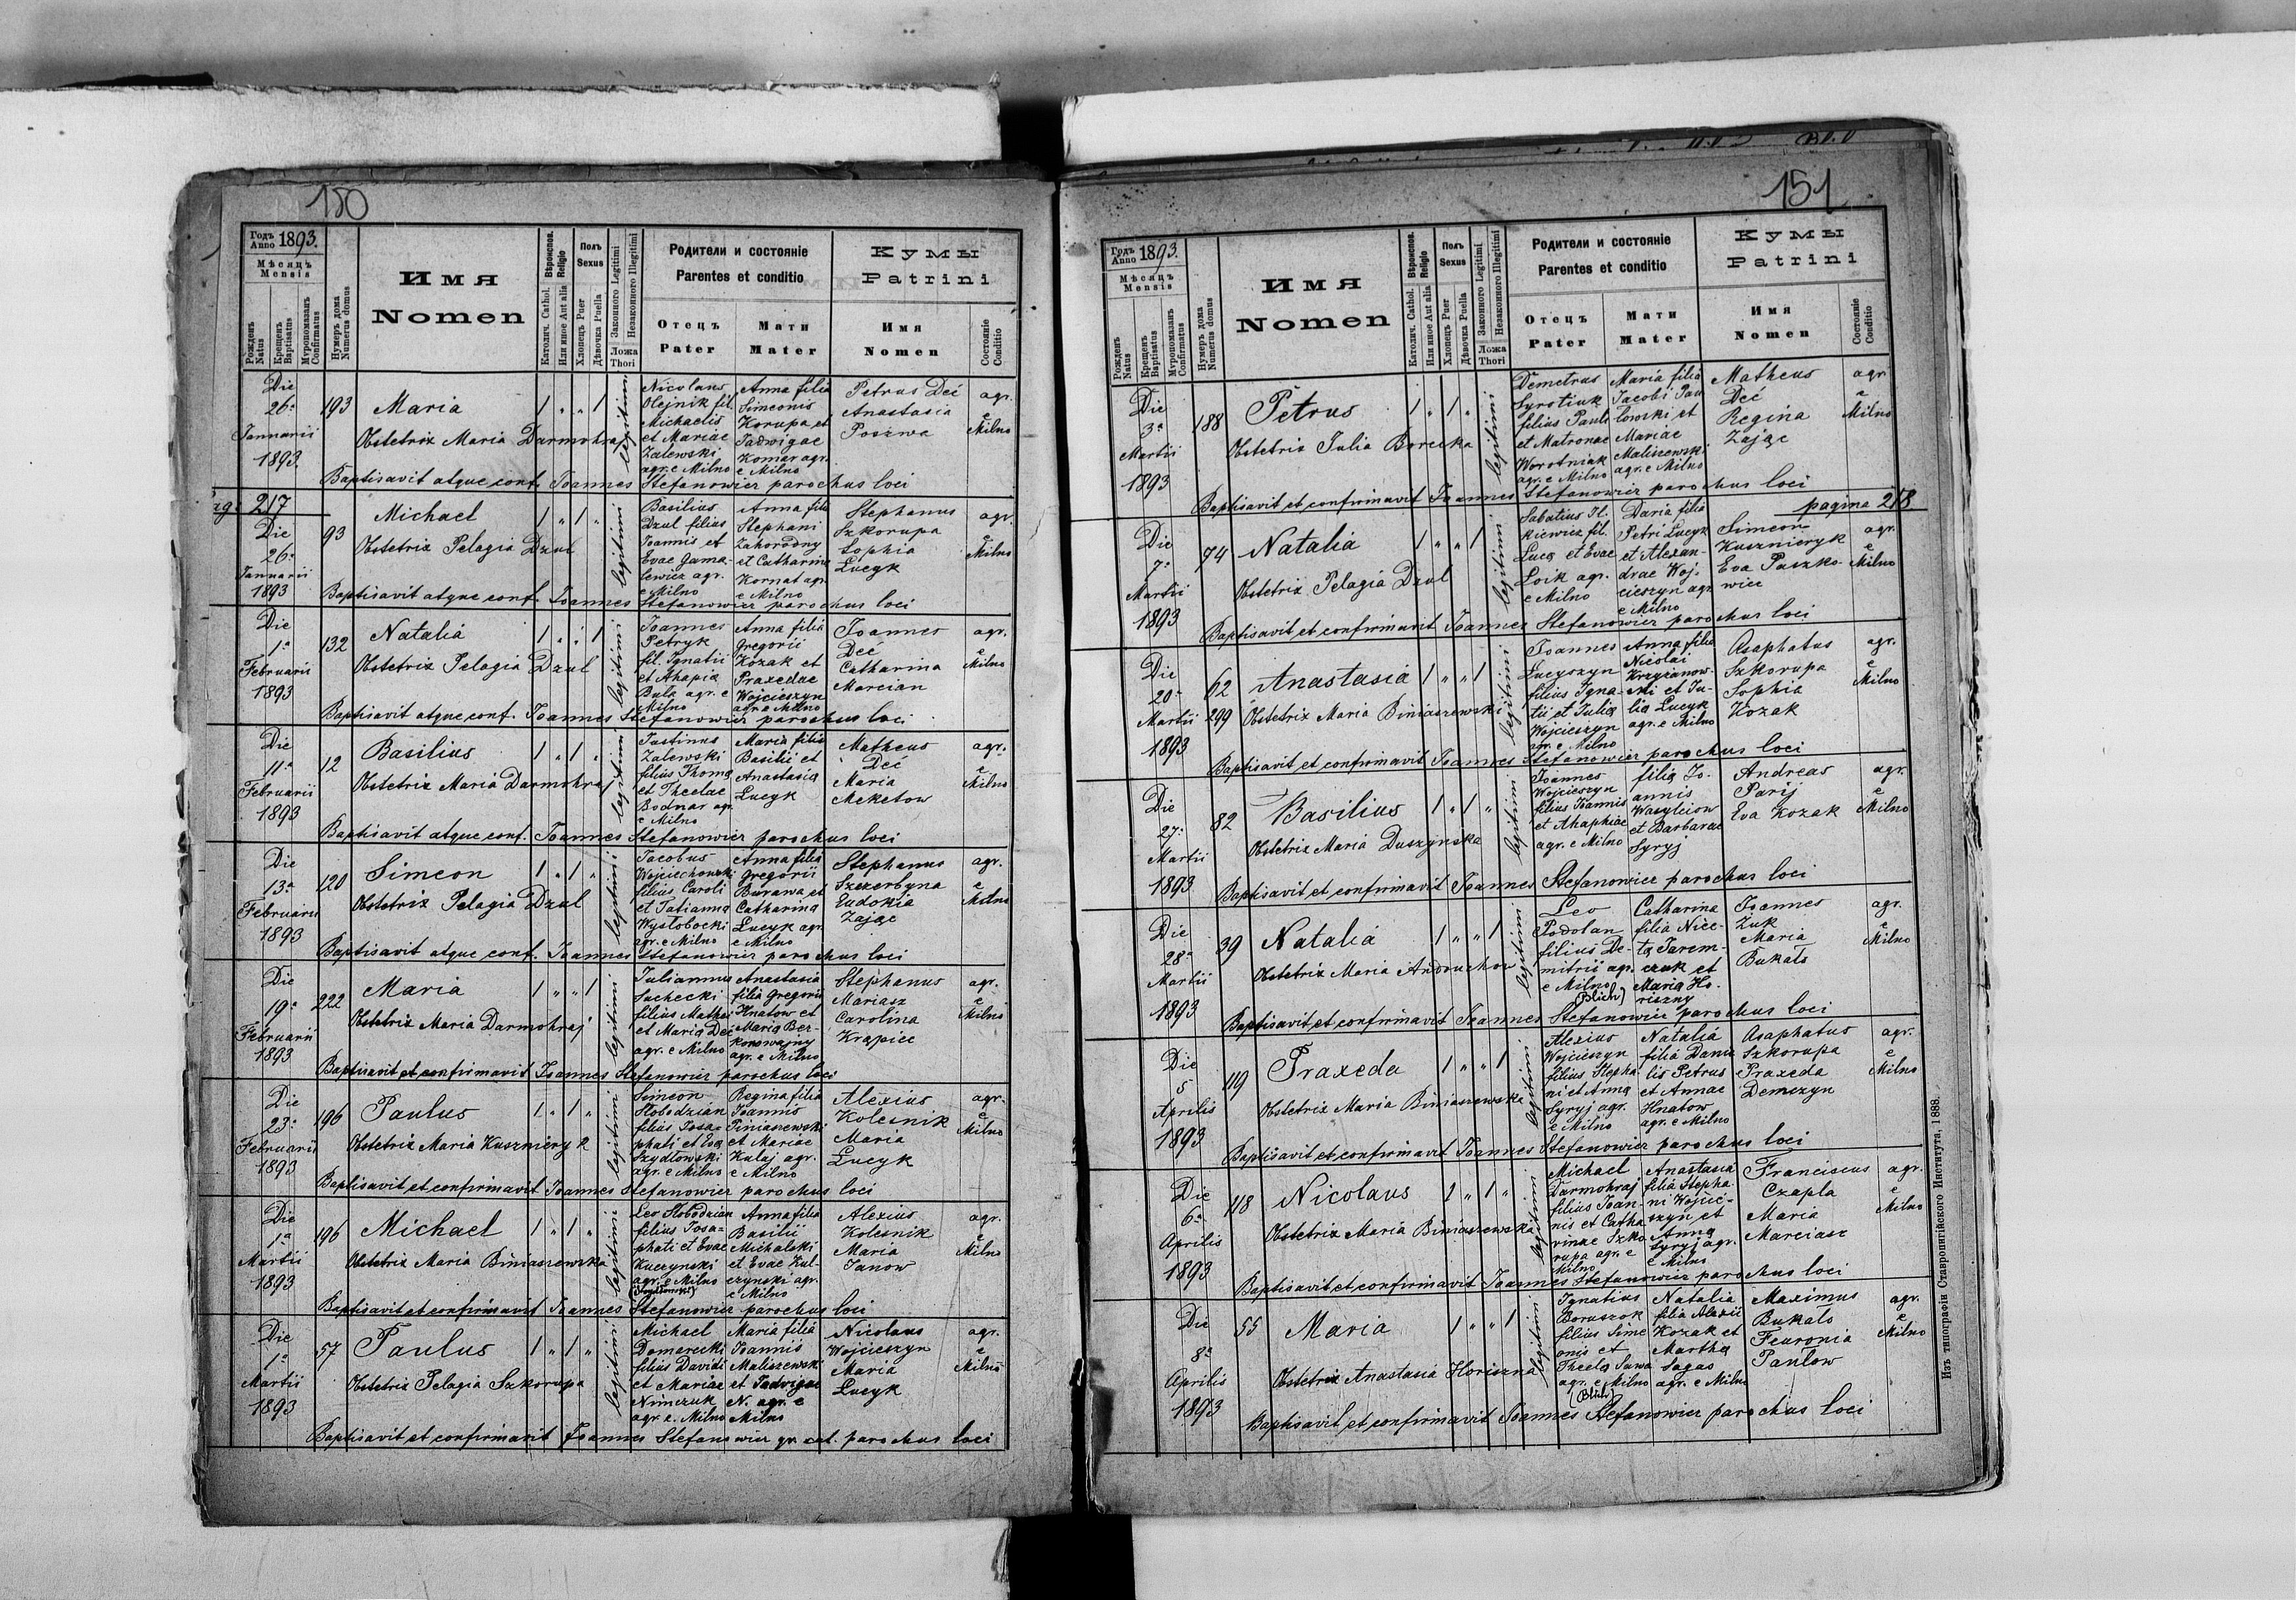 150
Годъ Anno 1893.
Мѣсяцъ Mensis
Рожденъ Natus
Крещенъ Baptisatus
Мѵропомазанъ Confirmatus
Нумеръ дома Numerus domus
Имя
Nomen
Вѣроиспов. Religio
Католич. Cathol.
Или иное Aut alia
Полъ Sexus
Хлопецъ Puer
Дѣвочка Puella
Законного Legitimi
Незаконного Illegitimi
Ложа Thori
Родители и состояніе
Parentes et conditio
Отецъ Pater
Мати Mater
Кумы
Patrini
Имя Nomen
Состояніе Conditio
Die 26a Januarii 1893.
193
Maria
1 „ „ 1
legitimi
Nicolaus Olejnik fil. Michaelis et Mariae Zalewski agr. e Milno
Anna filia Simeonis Korupa et Jadwigae Komar agr. e Milno
Petrus Deć
Anastasia Poszwa
agr. e Milno
Obstetrix Maria Darmohraj
Baptisavit atque conf. Joannes Stefanowicz parochus loci
pag: 217
Die 26a Januarii 1893
93
Michael
1 „ 1 „
legitimi
Basilius Dzul filius Joannis et Evae Gama-lewicz agr. e Milno
Anna filia Stephani Zahorodny et Catharina Kornat agr. e Milno
Stephanus Szkorupa
Sophia Lucyk
agr. e Milno
Obstetrix Pelagia Dzul
Baptisavit atque conf. Joannes Stefanowicz parochus loci
Die 1a Februarii 1893
132
Natalia
1 „ „ 1
legitimi
Joannes Petryk fil. Ignatii et Ahapia Bula agr. e Milno
Anna filia Gregorii Kozak et Praxedae Wojcieszyn agr. e Milno
Joannes Deć
Catharina Marcian
agr. e Milno
Obstetrix Pelagia Dzul
Baptisavit atque conf. Joannes Stefanowicz parochus loci
Die 11a Februarii 1893
12
Basilius
1 „ 1 „
legitimi
Justinus Zalewski filius Thoma et Theclae Bodnar agr. e Milno
Maria filia Basilii et Anastasia Lucyk
Matheus Deć
Maria Meketow
agr. e Milno
Obstetrix Maria Darmohraj
Baptisavit atque conf. Joannes Stefanowicz parochus loci
Die 13a Februarii 1893
120
Simeon
1 „ 1 „
legitimi
Jacobus Wojciechowski filius Caroli et Tatianna Wysłobocki agr. e Milno
Anna filia Gregorii Burawa et Catharina Lucyk agr. e Milno
Stephanus Szczerbyna
Eudokia Zając
agr. e Milno
Obstetrix Pelagia Dzul
Baptisavit atque conf. Joannes Stefanowicz parochus loci
Die 19a Februarii 1893
222
Maria
1 „ „ 1
legitimi
Julianus Sachecki filius Mathei et Maria Deć agr. e Milno
Anastasia filia Gregorii Hnatow et Maria Ber-konowajny agr. e Milno
Stephanus Mariasz
Carolina Krapiec
agr. e Milno
Obstetrix Maria Darmohraj
Baptisavit et confirmavit Joannes Stefanowicz parochus loci
Die 23a Februarii 1893
196
Paulus
1 „ 1 „
legitimi
Simeon Słobodzian filius Josa-phati et Eva Szydłowski agr. e Milno
Regina filia Joannis Piniaszewski et Mariae Kulaj agr. e Milno
Alexius Kolesnik
Maria Lucyk
agr. e Milno
Obstetrix Maria Kusznieryk
Baptisavit et confirmavit Joannes Stefanowicz parochus loci
Die 1a Martii 1893
196
Michael
1 „ 1 „
legitimi
Leo Słobodzian filius Josa-phati et Evae Kuczynski agr. e Milno (Szydłowski)
Anna filia Basilii Michalski et Evae Kul-czynski agr. e Milno
Alexius Kolesnik
Maria Janow
agr. e Milno
Obstetrix Maria Biniaszewska
Baptisavit et confirmavit Joannes Stefanowicz parochus loci
Die 1a Martii 1893
57
Paulus
1 „ 1 „
legitimi
Michael Domarecki filius Davidi et Mariae Nimczuk agr. e Milno
Maria filia Joannis Maliszewski et Jadvigae N. agr. e Milno
Nicolaus Wojcieszyn
Maria Lucyk
agr. e Milno
Obstetrix Pelagia Szkorupa
Baptisavit et confirmavit Joannes Stefanowicz gr. cat. parochus loci
151
Годъ Anno 1893.
Мѣсяцъ Mensis
Рожденъ Natus
Крещенъ Baptisatus
Мѵропомазанъ Confirmatus
Нумеръ дома Numerus domus
Имя
Nomen
Вѣроиспов. Religio
Католич. Cathol.
Или иное Aut alia
Полъ Sexus
Хлопецъ Puer
Дѣвочка Puella
Законного Legitimi
Незаконного Illegitimi
Ложа Thori
Родители и состояніе
Parentes et conditio
Отецъ Pater
Мати Mater
Кумы
Patrini
Имя Nomen
Состояніе Conditio
Die 3a Martii 1893
188
Petrus
1 „ 1 „
legitimi
Demetrus Syrotiuk filius Pauli et Matronae Worotniak agr. e Milno
Maria filia Jacobi Paw-łowski et Mariae Maliszewski agr. e Milno
Matheus Deć
Regina Zając
agr. e Milno
Obstetrix Julia Borecka
Baptisavit et confirmavit Joannes Stefanowicz parochus loci
pagina 218
Die 7a Martii 1893
74
Natalia
1 „ „ 1
legitimi
Sabatius Il-kiewicz fil. Luca et Evae Loik agr. e Milno
Daria filia Petri Lucyk et Alexan-drae Woj-cieszyn agr. e Milno
Simeon Kusznieryk
Eva Paszko-wicz
agr. e Milno
Obstetrix Pelagia Dzul
Baptisavit et confirmavit Joannes Stefanowicz parochus loci
Die 20a Martii 1893
62
299
Anastasia
1 „ „ 1
legitimi
Joannes Lucyszyn filius Igna-tii et Julia Wojcieszyn agr. e Milno
Anna filia Nicolai Krzyzanow-ski et Ju-lia Lucyk agr. e Milno
Asaphatus Szkorupa
Sophia Kozak
agr. e Milno
Obstetrix Maria Biniaszewski
Baptisavit et confirmavit Joannes Stefanowicz parochus loci
Die 27a Martii 1893
82
Basilius
1 „ 1 „
legitimi
Joannes Wojcieszyn filius Joannis et Ahaphiae agr. e Milno
filia Jo-annis Wasylciow et Barbarae Syryj
Andreas Parij
Eva Kozak
agr. e Milno
Obstetrix Maria Duszynska
Baptisavit et confirmavit Joannes Stefanowicz parochus loci
Die 28a Martii 1893
39
Natalia
1 „ „ 1
legitimi
Leo Podolan filius De-mitrii agr. e Milno (Blich)
Catharina filia Nice-ta Jarem-czuk et Maria Ho-riszny
Joannes Zuk
Maria Bukato
agr. e Milno
Obstetrix Maria Andruchow
Baptisavit et confirmavit Joannes Stefanowicz parochus loci
Die 5 Aprilis 1893
119
Praxeda
1 „ „ 1
legitimi
Alexius Wojcieszyn filius Stepha-ni et Anna Syryj agr. e Milno
Natalia filia Danie-lis Petrus et Annae Hnatow agr. e Milno
Asaphatus Szkorupa
Praxeda Demczyn
agr. e Milno
Obstetrix Maria Biniaszewska
Baptisavit et confirmavit Joannes Stefanowicz parochus loci
Die 6a Aprilis 1893
118
Nicolaus
1 „ 1 „
legitimi
Michael Darmohraj filius Joan-nis et Catha-rinae Szko-rupa agr. e Milno
Anastasia filia Stepha-ni Wojcie-szyn et Anna Syryj agr. e Milno
Franciscus Czapla
Maria Marciasz
agr. e Milno
Obstetrix Maria Biniaszewska
Baptisavit et confirmavit Joannes Stefanowicz parochus loci
Die 8a Aprilis 1893
55
Maria
1 „ „ 1
legitimi
Ignatius Boruszok filius Sime-onis et Thecla Sawa agr. e Milno (Blich)
Natalia filia Alexii Kozak et Martha Sagas agr. e Milno
Maximus Bukato
Feuronia Pawlow
agr. e Milno
Obstetrix Anastasia Horiszna
Baptisavit et confirmavit Joannes Stefanowicz parochus loci
Изъ типографіи Ставропигійского Института, 1888.